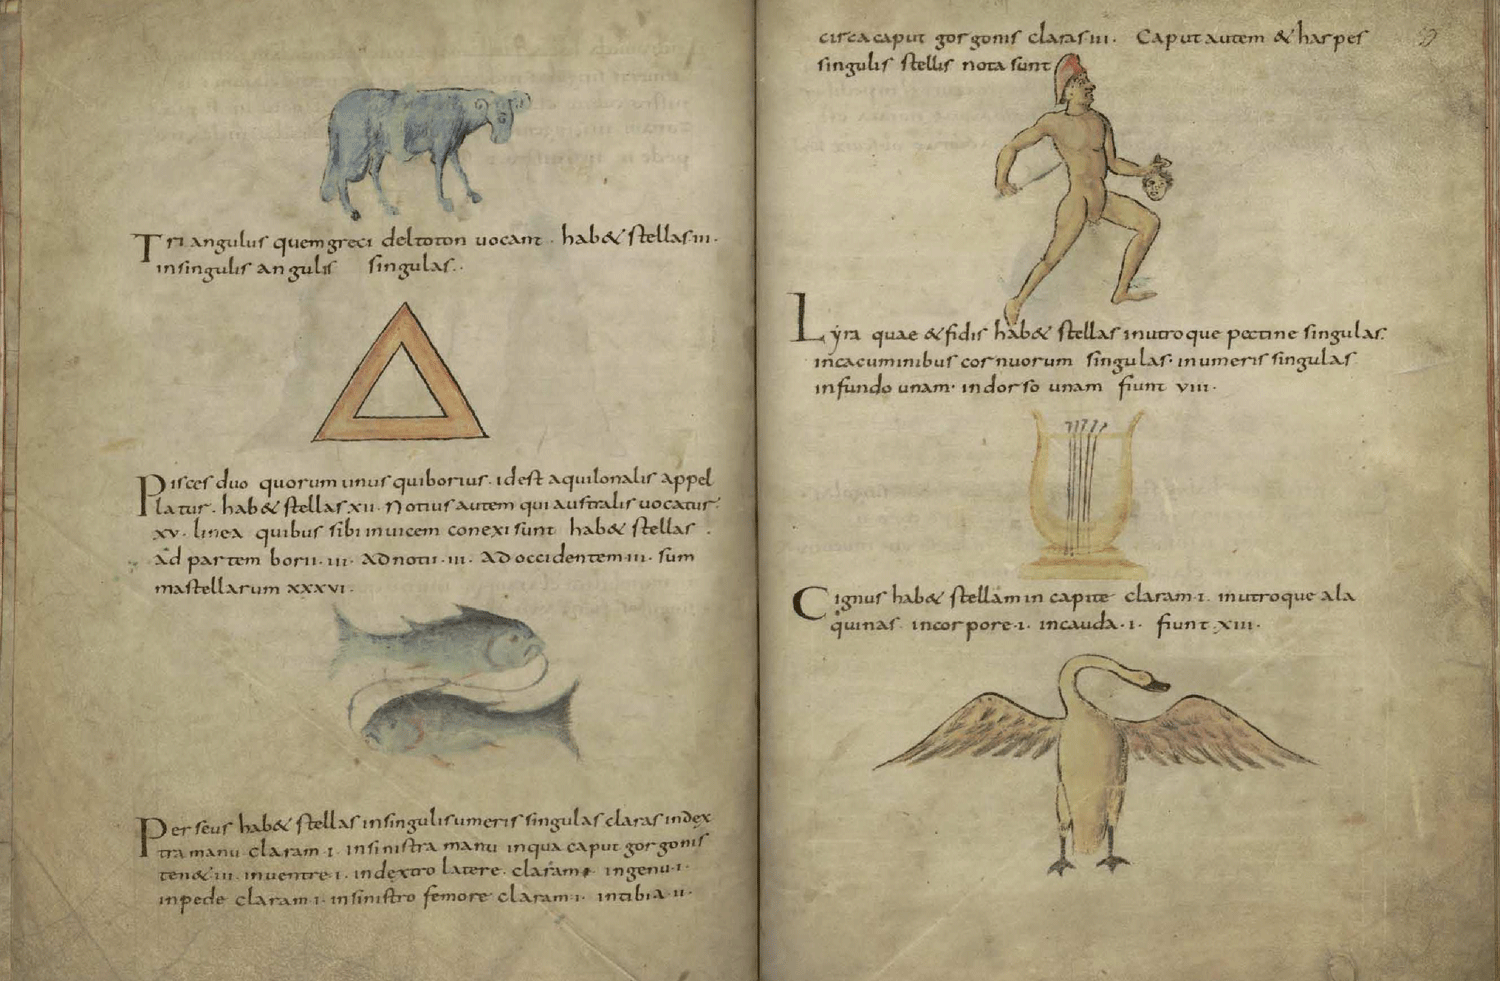 Triangulus quem greci deltoton uocant · hab& stellas·iii·
in singulis angulis singulas·
Pisces duo quorum unus qui borius · id est aquilonalis appel
latur · hab& stellas xii · Notius autem qui australis uocatur
xv · linea quibus sibi inuicem conexi sunt hab& stellas ·
Ad partem borii · iii · Ad notii · iii · Ad occidentem · iii · sum
ma stellarum xxxvi ·
Perseus hab& stellas in singulis umeris singulas claras in dex
tra manu claram · i · in sinistra manu in qua caput gorgonis
ten& iii · in uentre · i · in dextro latere · claram · in genu · i ·
in pede claram · i · in sinistro femore claram · i · in tibia · ii ·
circa caput gorgonis claras iii · Caput autem & harpes
singulis stellis nota sunt
Lyra quae & fidis hab& stellas in utroque pectine singulas
in cacuminibus cornuorum singulas · in umeris singulas
in fundo unam · in dorso unam fiunt viii ·
Cignus hab& stellam in capite claram · i · in utroque ala
quinas in corpore · i · in cauda · i · fiunt xiii ·